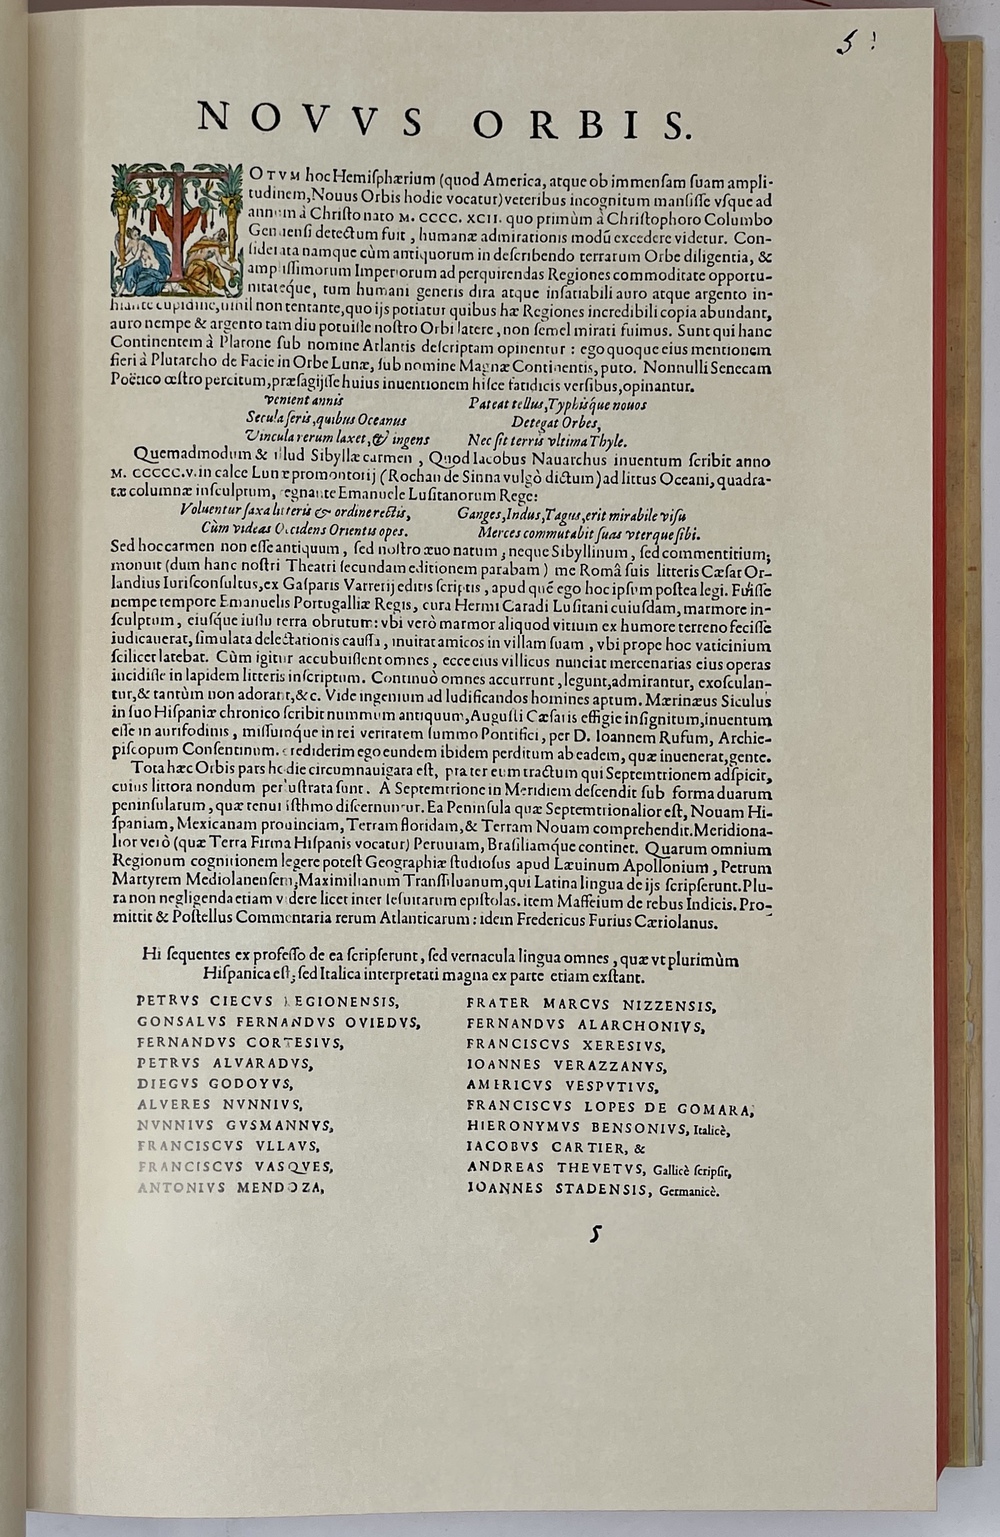 5!
NOVVS ORBIS.
TOTVM hoc Hemiſphærium (quod America, atque ob immenſam ſuam ampli-
tudinem, Nouus Orbis hodie vocatur) veteribus incognitum manſiſſe vſque ad
annum à Chriſto nato M. CCCC. XCII. quo primùm à Chriſtophoro Columbo
Genuenſi detectum fuit, humanæ admirationis modū excedere videtur. Con-
ſiderata namque cùm antiquorum in deſcribendo terrarum Orbe diligentia, &
ampliſſimorum Imperiorum ad perquirendas Regiones commoditate opportu-
nitateque, tum humani generis dira atque inſatiabili auro atque argento in-
hiante cupidine, nihil non tentante, quo ijs potiatur quibus hæ Regiones incredibili copia abundant,
auro nempe & argento tam diu potuiſſe noſtro Orbi latere, non ſemel mirati fuimus. Sunt qui hanc
Continentem à Platone ſub nomine Atlantis deſcriptam opinentur: ego quoque eius mentionem
fieri à Plutarcho de Facie in Orbe Lunæ, ſub nomine Magnæ Continentis, puto. Nonnulli Senecam
Poëtico œſtro percitum, præſagijſſe huius inuentionem hiſce fatidicis verſibus, opinantur.
venient annis Pateat tellus, Typhiſque nouos
Secula ſeris, quibus Oceanus Detegat Orbes,
Vincula rerum laxet, & ingens Nec ſit terris vltima Thyle.
Quemadmodum & illud Sibyllæ carmen, Quod Iacobus Nauarchus inuentum ſcribit anno
M. CCCCC.V. in calce Lunæ promontorij (Rochan de Sinna vulgò dictum) ad littus Oceani, quadra-
tæ columnæ inſculptum, regnante Emanuele Luſitanorum Rege:
Voluentur ſaxa literis & ordine rectis, Ganges, Indus, Tagus, erit mirabile viſu
Cùm videas Occidens Orientis opes. Merces commutabit ſuas vterque ſibi.
Sed hoc carmen non eſſe antiquum, ſed noſtro æuo natum, neque Sibyllinum, ſed commentitium;
monuit (dum hanc noſtri Theatri ſecundam editionem parabam) me Româ ſuis litteris Cæſar Or-
landius Iuriſconſultus, ex Gaſparis Varrerij editis ſcriptis, apud quē ego hoc ipſum poſtea legi. Fuiſſe
nempe tempore Emanuelis Portugalliæ Regis, cura Hermi Caradi Luſitani cuiuſdam, marmore in-
ſculptum, eiuſque iuſſu terra obrutum: vbi verò marmor aliquod vitium ex humore terreno feciſſe
iudicauerat, ſimulata delectationis cauſſa, inuitat amicos in villam ſuam, vbi prope hoc vaticinium
ſcilicet latebat. Cùm igitur accubuiſſent omnes, ecce eius villicus nunciat mercenarias eius operas
incidiſſe in lapidem litteris inſcriptum. Continuò omnes accurrunt, legunt, admirantur, exoſculan-
tur, & tantùm non adorant, &c. Vide ingenium ad ludificandos homines aptum. Mærinæus Siculus
in ſuo Hiſpaniæ chronico ſcribit nummum antiquum, Auguſti Cæſaris effigie inſignitum, inuentum
eſſe in aurifodinis, miſſumque in rei veritatem ſummo Pontifici, per D. Ioannem Rufum, Archie-
piſcopum Conſentinum. crediderim ego eundem ibidem perditum ab eadem, quæ inuenerat, gente.
Tota hæc Orbis pars hodie circumnauigata eſt, præter eum tractum qui Septemtrionem adſpicit,
cuius littora nondum perluſtrata ſunt. A Septemtrione in Meridiem deſcendit ſub forma duarum
peninſularum, quæ tenui iſthmo diſcernuntur. Ea Peninſula quæ Septemtrionalior eſt, Nouam Hi-
ſpaniam, Mexicanam prouinciam, Terram floridam, & Terram Nouam comprehendit. Meridiona-
lior verò (quæ Terra Firma Hiſpanis vocatur) Peruuiam, Braſiliamque continet. Quarum omnium
Regionum cognitionem legere poteſt Geographiæ ſtudioſus apud Læuinum Apollonium, Petrum
Martyrem Mediolanenſem, Maximilianum Tranſſiluanum, qui Latina lingua de ijs ſcripſerunt. Plu-
ra non negligenda etiam videre licet inter Ieſuitarum epiſtolas. item Maffeium de rebus Indicis. Pro-
mittit & Poſtellus Commentaria rerum Atlanticarum: idem Fredericus Furius Cæriolanus.
Hi ſequentes ex profeſſo de ea ſcripſerunt, ſed vernacula lingua omnes, quæ vt plurimùm
Hiſpanica eſt; ſed Italica interpretati magna ex parte etiam exſtant.
PETRVS CIECVS LEGIONENSIS, FRATER MARCVS NIZZENSIS,
GONSALVS FERNANDVS OVIEDVS, FERNANDVS ALARCHONIVS,
FERNANDVS CORTESIVS, FRANCISCVS XERESIVS,
PETRVS ALVARADVS, IOANNES VERAZZANVS,
DIEGVS GODOYVS, AMERICVS VESPVTIVS,
ALVERES NVNNIVS, FRANCISCVS LOPES DE GOMARA,
NVNNIVS GVSMANNVS, HIERONYMVS BENSONIVS, Italicè,
FRANCISCVS VLLAVS, IACOBVS CARTIER, &
FRANCISCVS VASQVES, ANDREAS THEVETVS, Gallicè ſcripſit,
ANTONIVS MENDOZA, IOANNES STADENSIS, Germanicè.
5